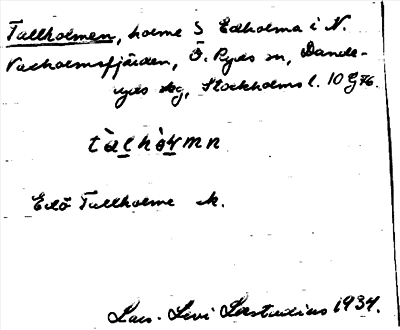 Tallholmen, holme S Edholma i N.
Vaxholmsfjärden, Ö. Ryds sn, Dande-
ryds skg, Stockholms l. 10 I 7G.
tàlhòlmn
Edö Tallholme k.
Lars-Levi Læstadius 1934.